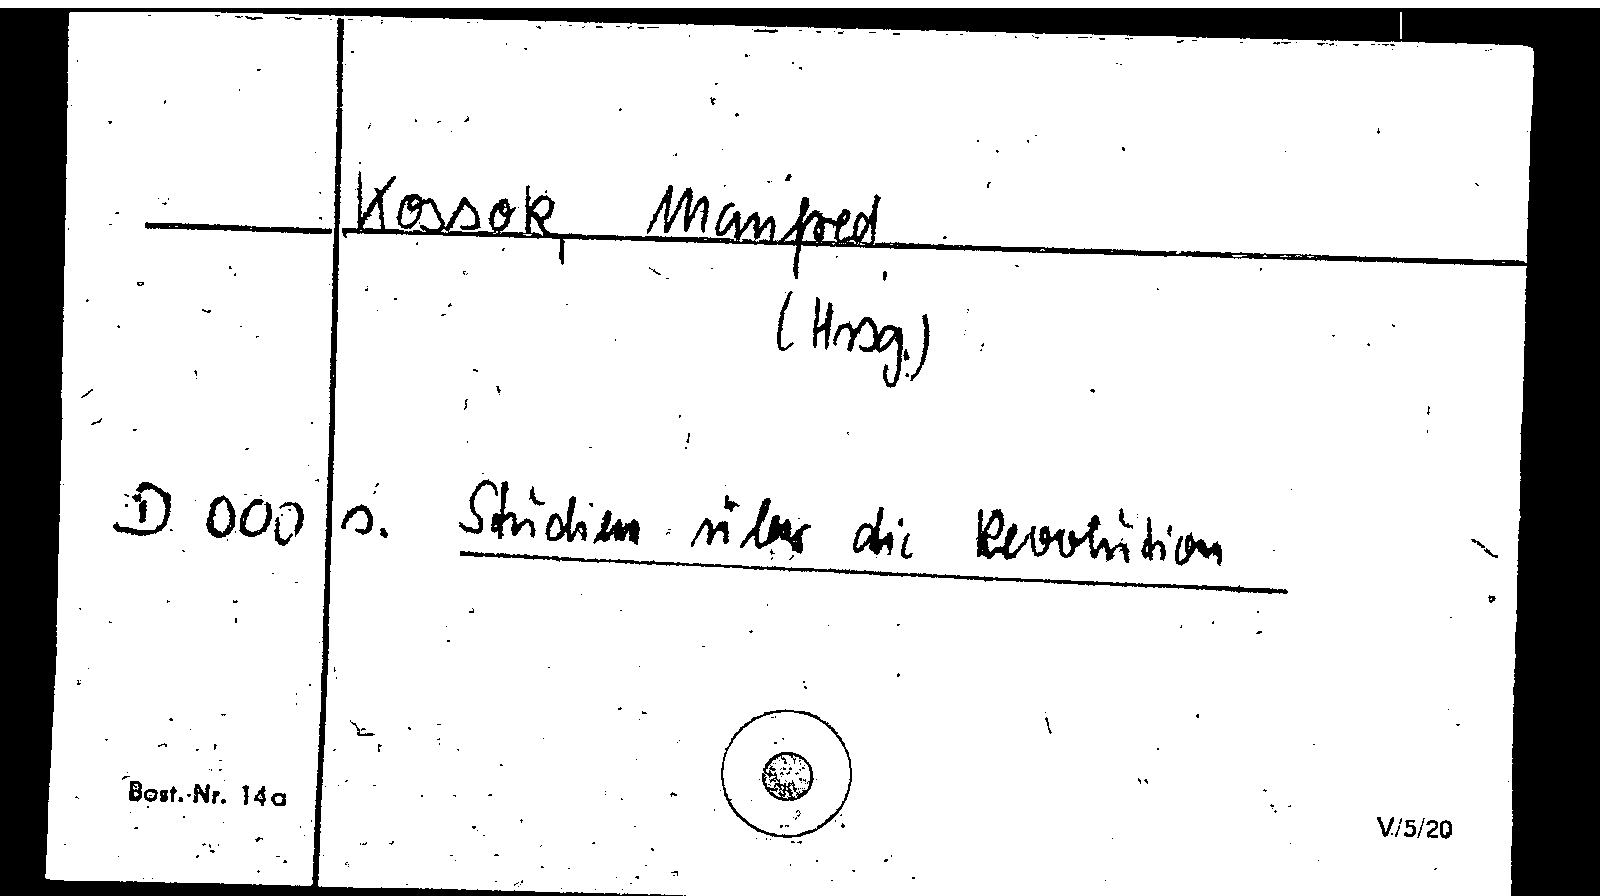 Kossok, Manfred
(Hrsg.)
D 000 s. Studien über die Revolution
Best.-Nr. 14a
V/5/20